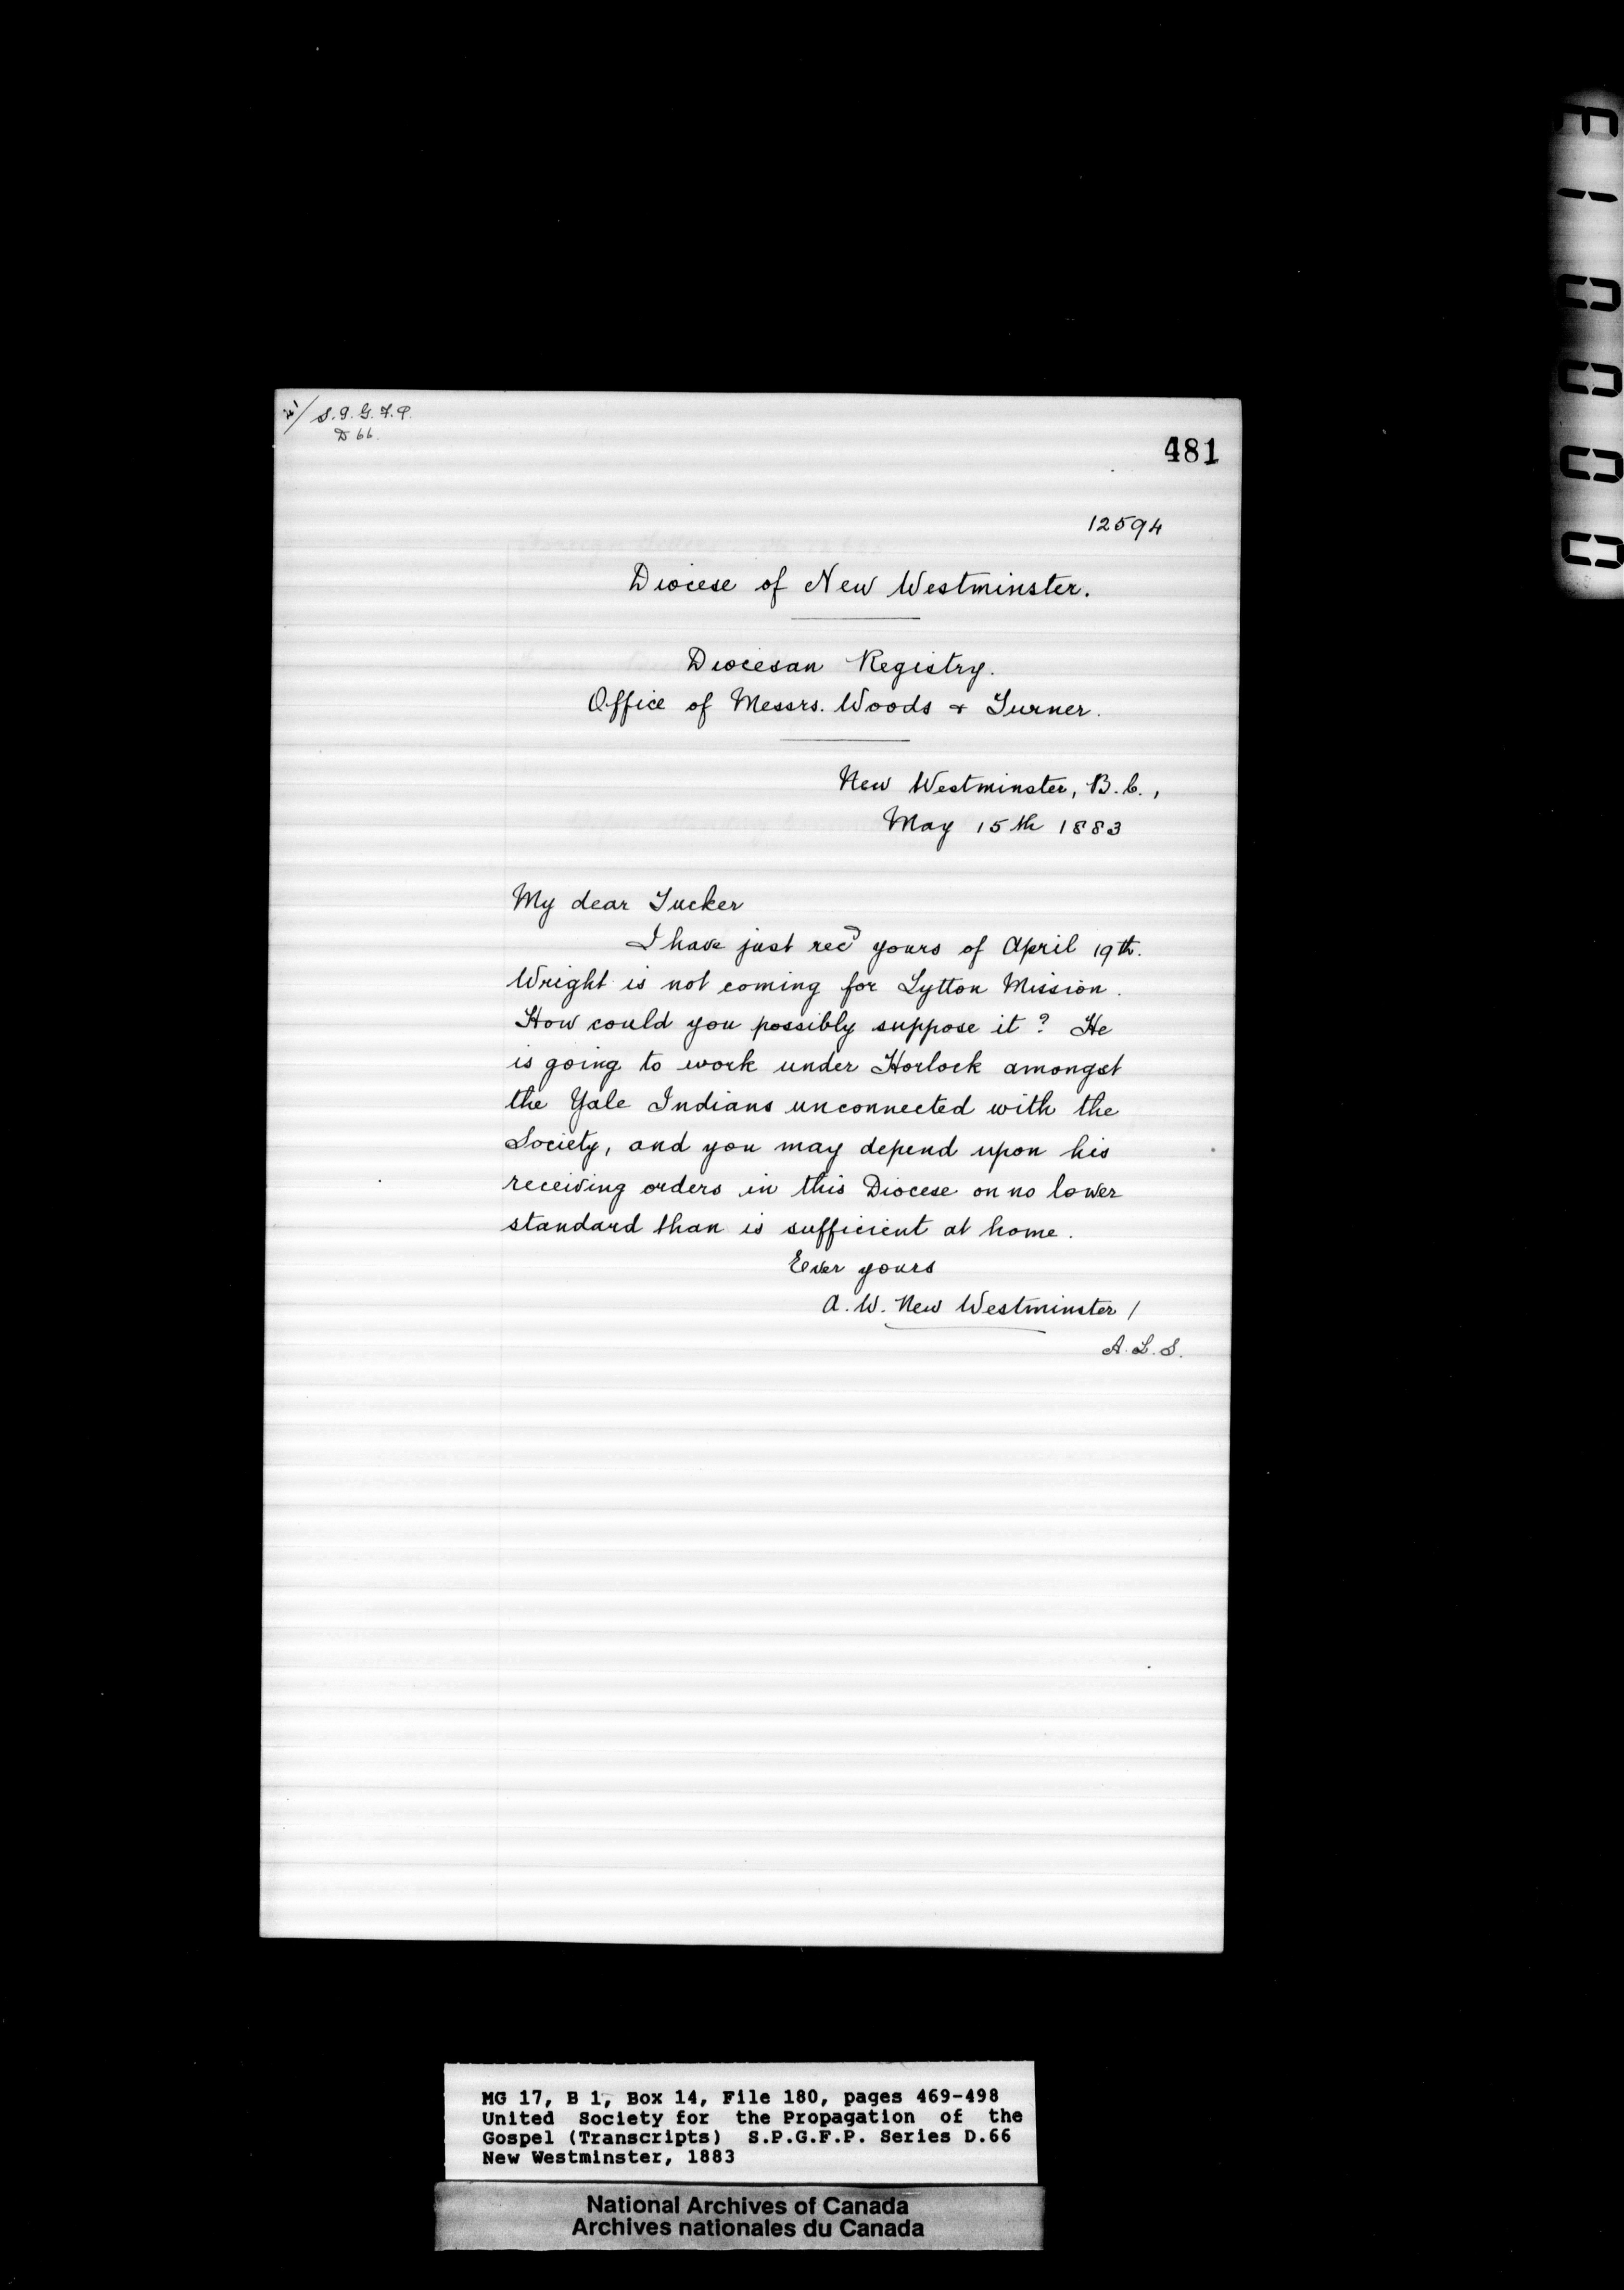 S.P.G.F.P.
D 66.
481
12594
Diocese of New Westminster.
Diocesan Registry.
Office of Messrs. Woods & Turner.
New Westminster, B.C.,
May 15th 1883
My dear Tucker
I have just recd yours of April 19th.
Wright is not coming for Lytton Mission.
How could you possibly suppose it? He
is going to work under Horlock amongst
the Yale Indians unconnected with the
Society, and you may depend upon his
receiving orders in this Diocese on no lower
standard than is sufficient at home.
Ever yours
A. W. New Westminster /
A. L. S.
MG 17, B 1, Box 14, File 180, pages 469-498
United Society for the Propagation of the
Gospel (Transcripts) S.P.G.F.P. Series D.66
New Westminster, 1883
National Archives of Canada
Archives nationales du Canada